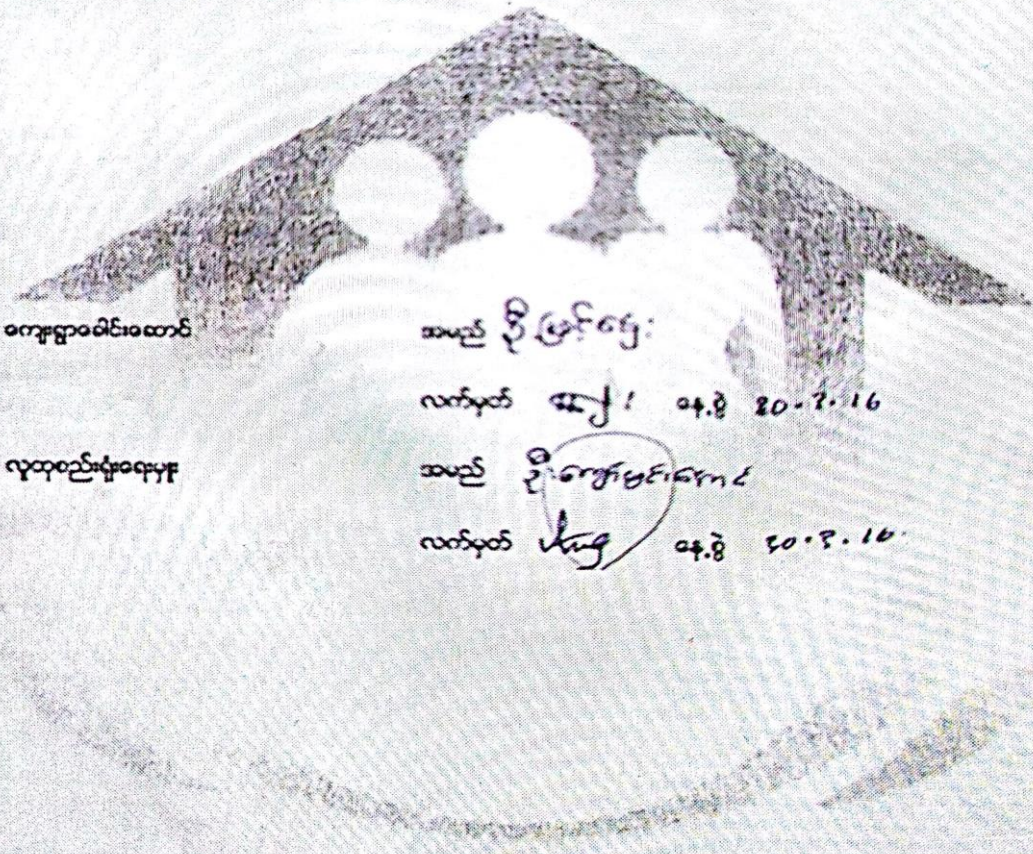 ကျေးရွာခေါင်းဆောင် အမည် ဦးမြင့်ဌေး
လက်မှတ် နေ့စွဲ 20.3.16
လူထုစည်းရုံးရေးမှူး အမည် ဦးကျော်မင်းအောင်
လက်မှတ် နေ့စွဲ 20.3.16